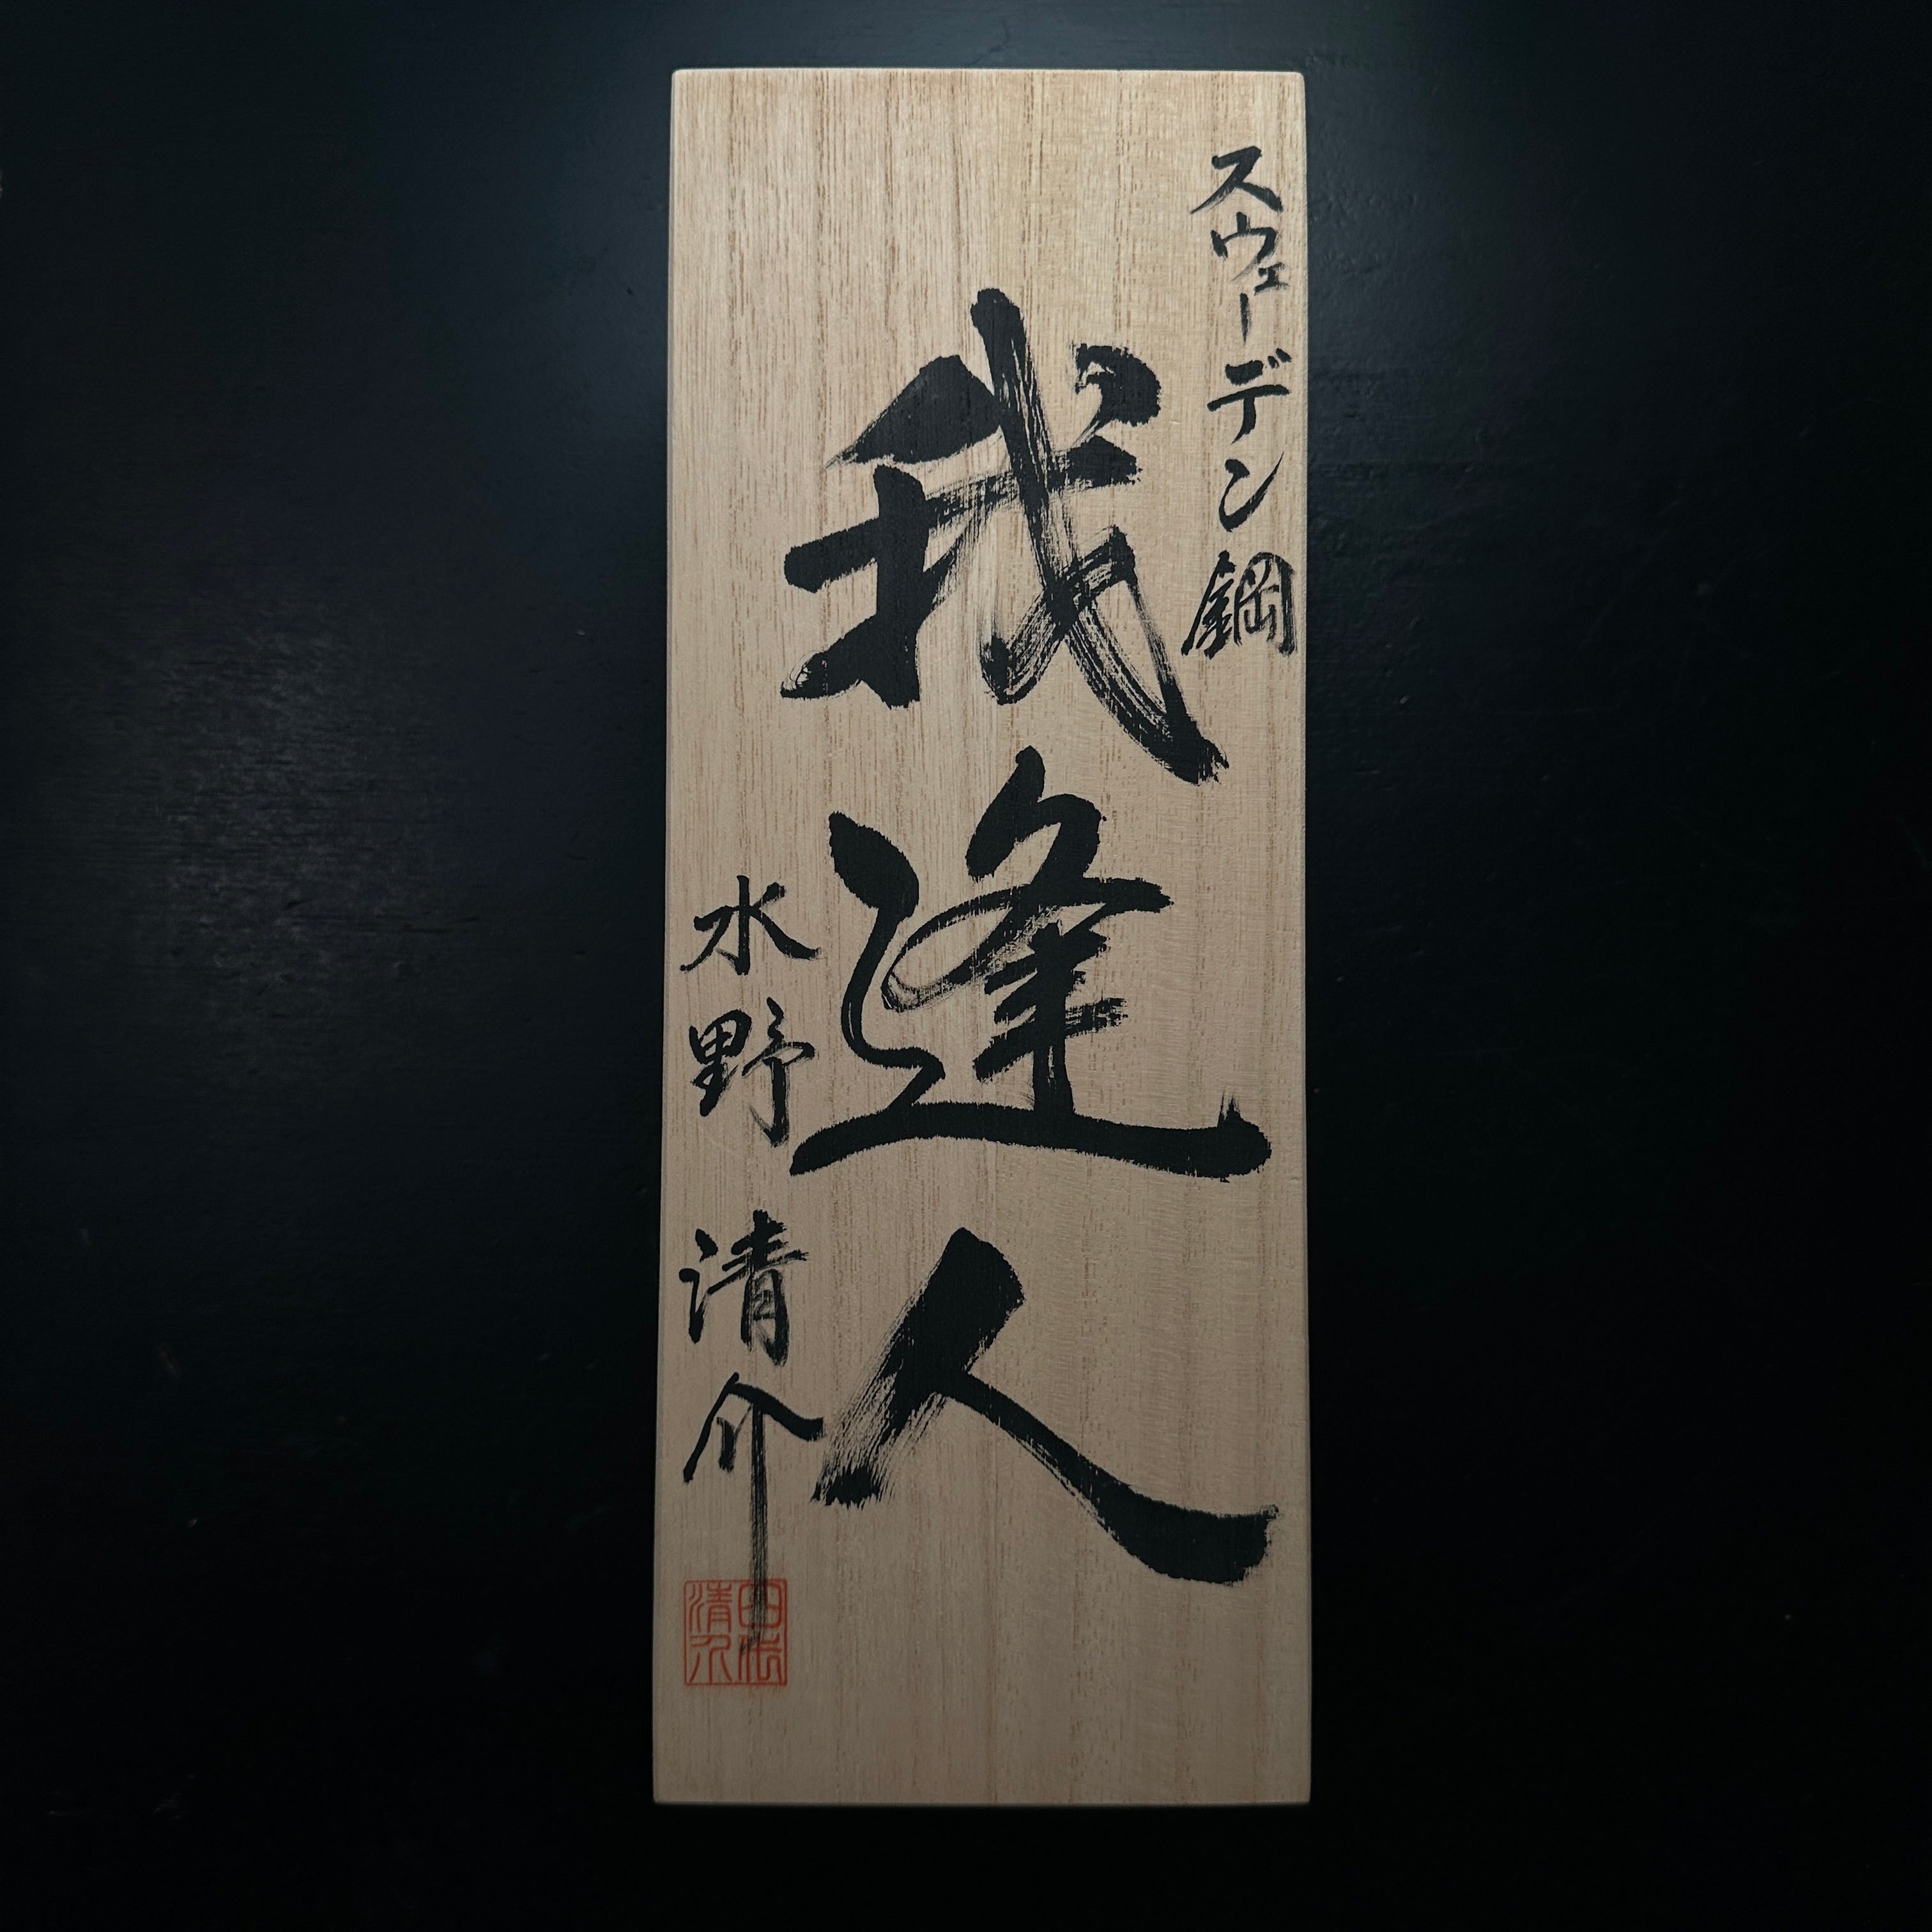 スウェーデン鋼
我逢人
水野清介